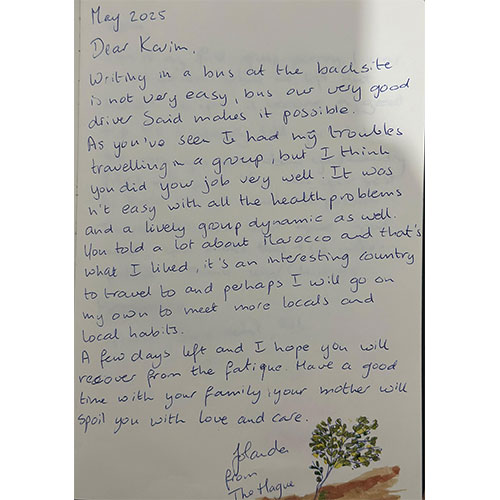 May 2025
Dear Karim,
Writing in a bus at the backsite
is not very easy, bus our very good
driver Said makes it possible.
As you've seen I had my troubles
travelling in a group, but I think
you did your job very well. It was
n't easy with all the health problems
and a lively group dynamic as well.
You told a lot about Marocco and that's
what I liked, it's an interesting country
to travel to and perhaps I will go on
my own to meet more locals and
local habits.
A few days left and I hope you will
recover from the fatigue. Have a good
time with your family, your mother will
spoil you with love and care.
from
The Hague